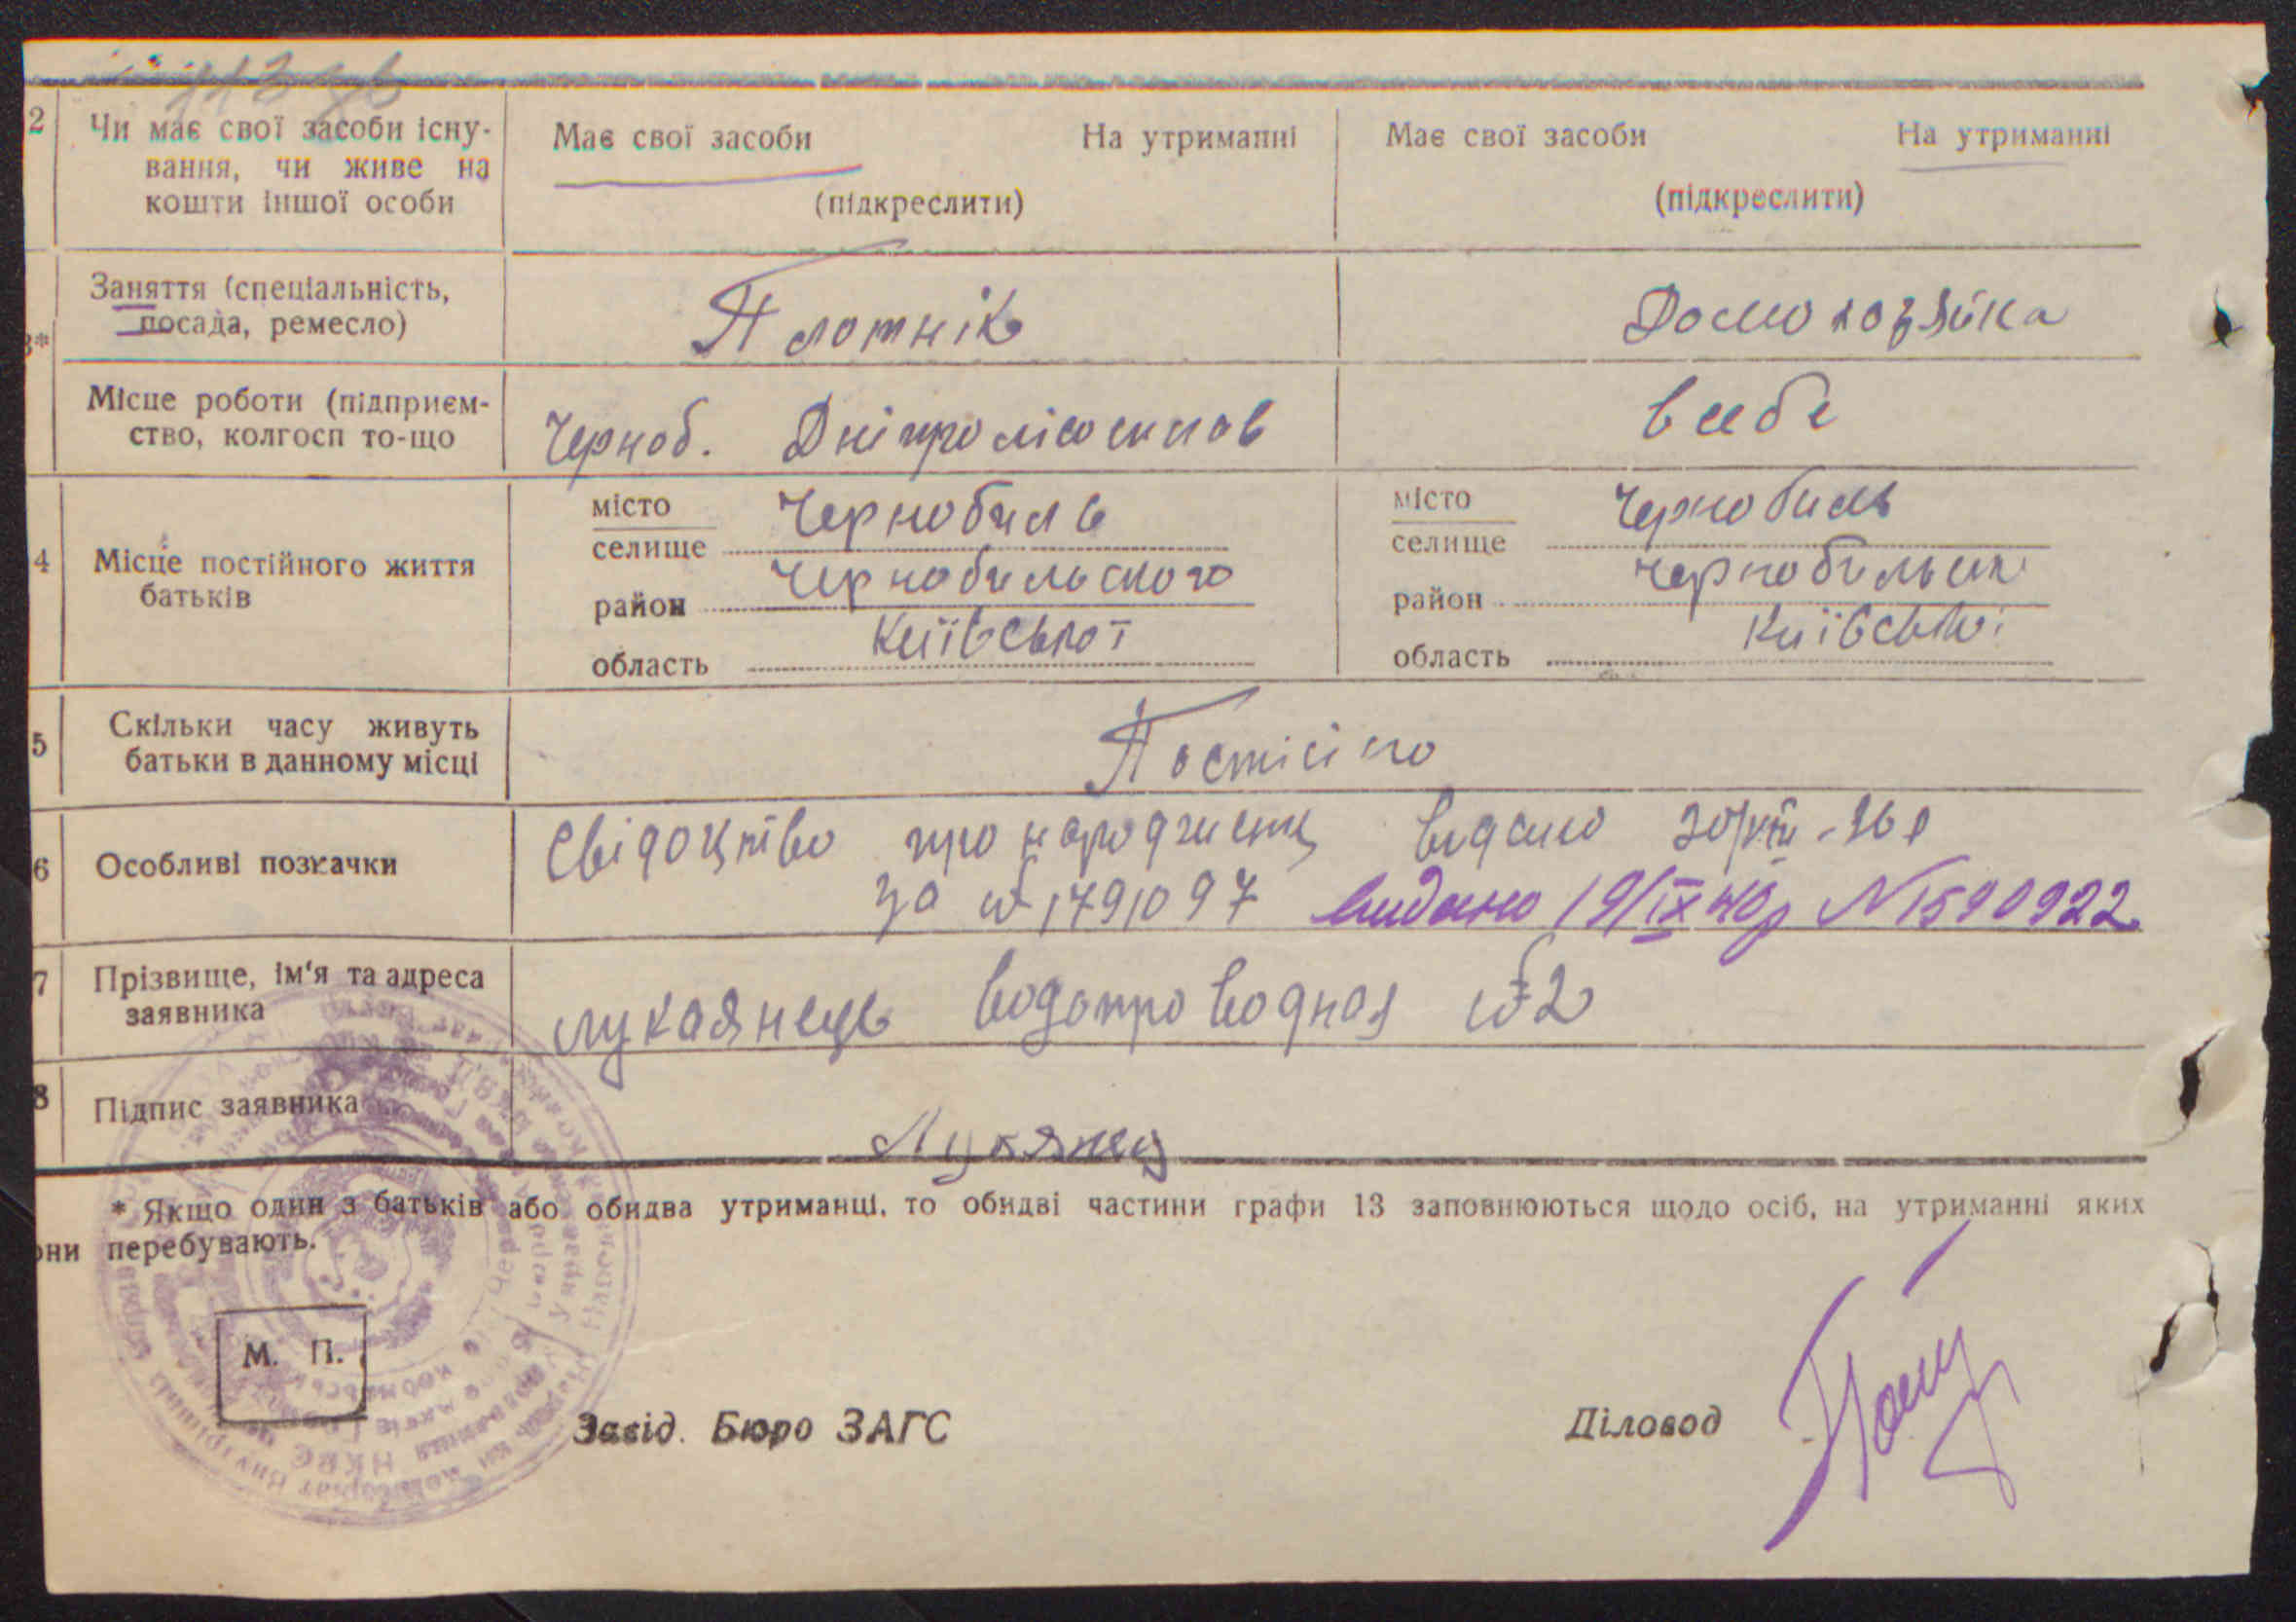 2 Чи має свої засоби існу- Має свої засоби На утриманні Має свої засоби На утриманні
вання, чи живе на
кошти іншої особи (підкреслити) (підкреслити)
Заняття (спеціальність,
посада, ремесло) Плотнік Домохозяйка
3*
Місце роботи (підприєм-
ство, колгосп то-що Черноб. Дніпролісосплав в себе
4 Місце постійного життя
батьків
місто Чернобиль місто Чернобиль
селище селище
район Чернобильского район Чернобильск
область Київської область Київської
5 Скільки часу живуть
батьки в данному місці Постіїно
6 Особливі позначки Свідоцтво про народження видано 20/VIII-36р
за № 1791097 видано 19/IX 40р N 1590922
7 Прізвище, ім'я та адреса
заявника Лукаянець Водопроводная № 2
8 Підпис заявника Лукянец
* Якщо один з батьків або обидва утриманці, то обидві частини графи 13 заповнюються щодо осіб, на утриманні яких
они перебувають.
М. П.
Завід. Бюро ЗАГС Діловод